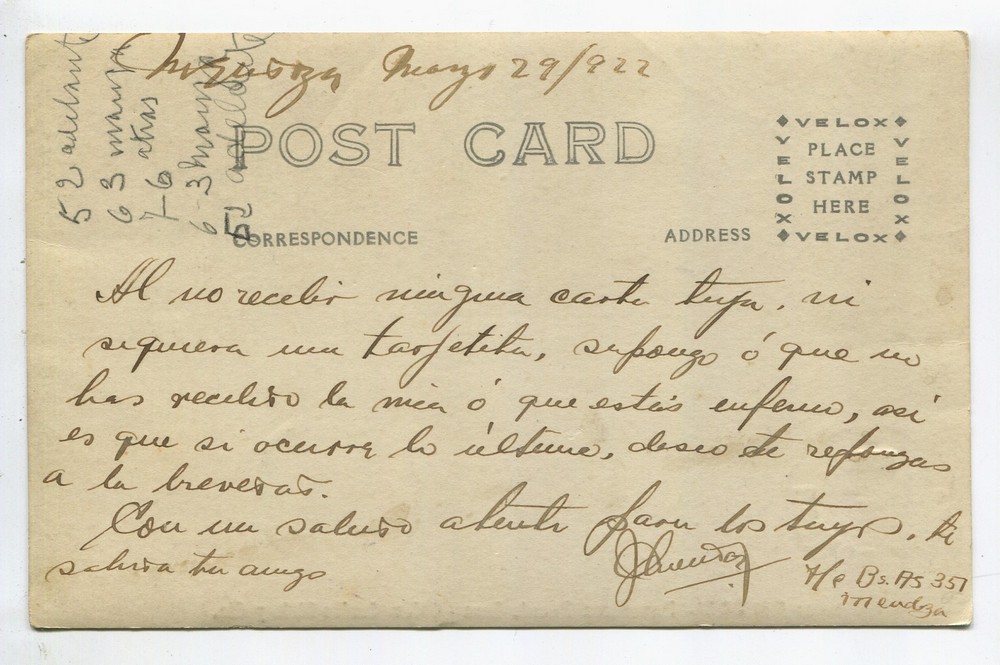 Mendoza Marzo 29/922
5 2 adelante
6 3 manga
7-6 atras
6-3 manga
52 adelante
POST CARD
CORRESPONDENCE
ADDRESS
VELOX
VELOX
PLACE
STAMP
HERE
VELOX
VELOX
Al no recebir ninguna carta tuya, ni
siquiera una tarjetita, supongo ó que no
has recebido la mia ó que estás enfermo, así
es que si ocurre lo último, deseo te repongas
a la brevedad.
Con un saludo atento para los tuyos, te
saluda tu amigo
Bs. As 351
Mendoza